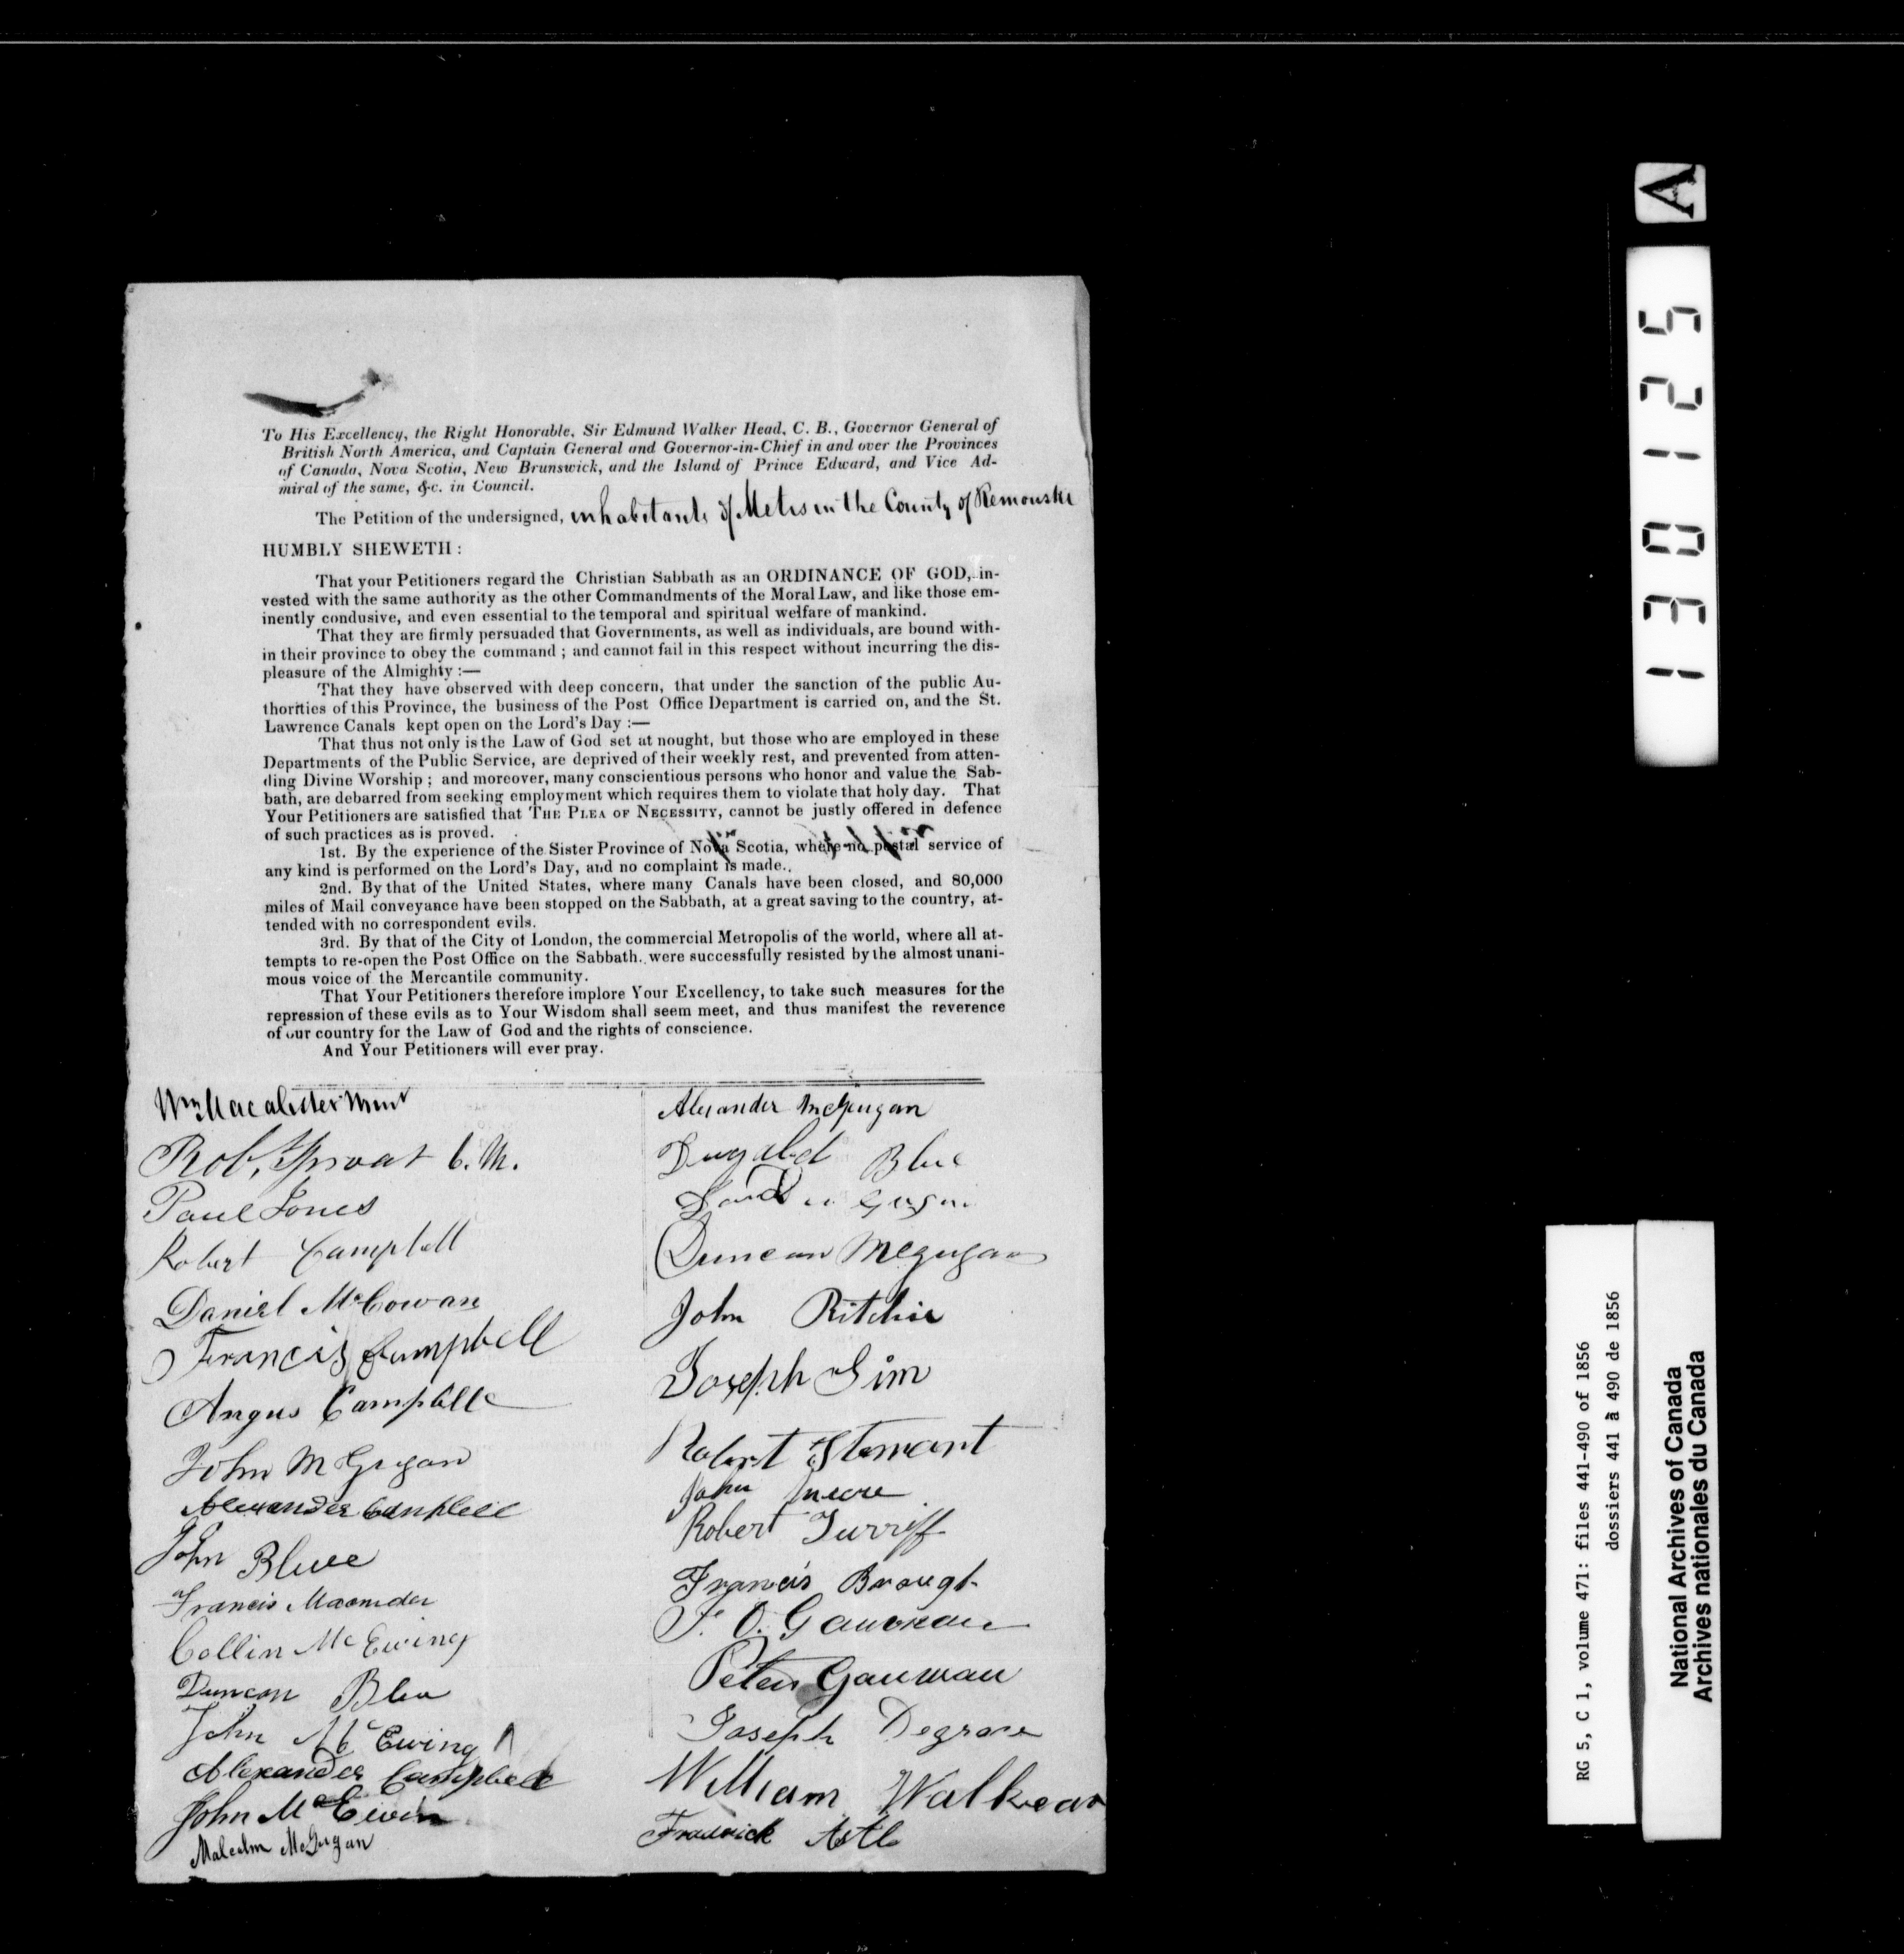 To His Excellency, the Right Honorable, Sir Edmund Walker Head, C. B., Governor General of
British North America, and Captain General and Governor-in-Chief in and over the Provinces
of Canada, Nova Scotia, New Brunswick, and the Island of Prince Edward, and Vice Ad-
miral of the same, &c. in Council.
The Petition of the undersigned, inhabitants of Metis in the County of Remouski
HUMBLY SHEWETH :
That your Petitioners regard the Christian Sabbath as an ORDINANCE OF GOD, in-
vested with the same authority as the other Commandments of the Moral Law, and like those em-
inently condusive, and even essential to the temporal and spiritual welfare of mankind.
That they are firmly persuaded that Governments, as well as individuals, are bound with-
in their province to obey the command ; and cannot fail in this respect without incurring the dis-
pleasure of the Almighty :—
That they have observed with deep concern, that under the sanction of the public Au-
thorities of this Province, the business of the Post Office Department is carried on, and the St.
Lawrence Canals kept open on the Lord's Day :—
That thus not only is the Law of God set at nought, but those who are employed in these
Departments of the Public Service, are deprived of their weekly rest, and prevented from atten-
ding Divine Worship ; and moreover, many conscientious persons who honor and value the Sab-
bath, are debarred from seeking employment which requires them to violate that holy day. That
Your Petitioners are satisfied that THE PLEA OF NECESSITY, cannot be justly offered in defence
of such practices as is proved.
1st. By the experience of the Sister Province of Nova Scotia, where no postal service of
any kind is performed on the Lord's Day, and no complaint is made.
2nd. By that of the United States, where many Canals have been closed, and 80,000
miles of Mail conveyance have been stopped on the Sabbath, at a great saving to the country, at-
tended with no correspondent evils.
3rd. By that of the City of London, the commercial Metropolis of the world, where all at-
tempts to re-open the Post Office on the Sabbath. were successfully resisted by the almost unani-
mous voice of the Mercantile community.
That Your Petitioners therefore implore Your Excellency, to take such measures for the
repression of these evils as to Your Wisdom shall seem meet, and thus manifest the reverence
of our country for the Law of God and the rights of conscience.
And Your Petitioners will ever pray.
Wm Macalister
Rob. Sproat C. M.
Paul Jones
Robert Campbell
Daniel McCowan
Francis Campbell
Angus Campbell
John McGugan
Alexander Campbell
John Blue
Francis
Collin McEwing
Duncan Blue
John McEwing
Alexander Campbell
John McEwin
Malcolm McGugan
Alexander McGugan
Dugald Blue
Duncan McGugan
John Ritchie
Joseph Sim
Robert Stewart
John
Robert Turriff
Francis Brough
F. O. Gauvreau
Peter Gauvreau
Joseph Degrace
William Walkear
Fradrick Astle
A
130125
RG 5, C 1, volume 471: files 441-490 of 1856
dossiers 441 à 490 de 1856
National Archives of Canada
Archives nationales du Canada